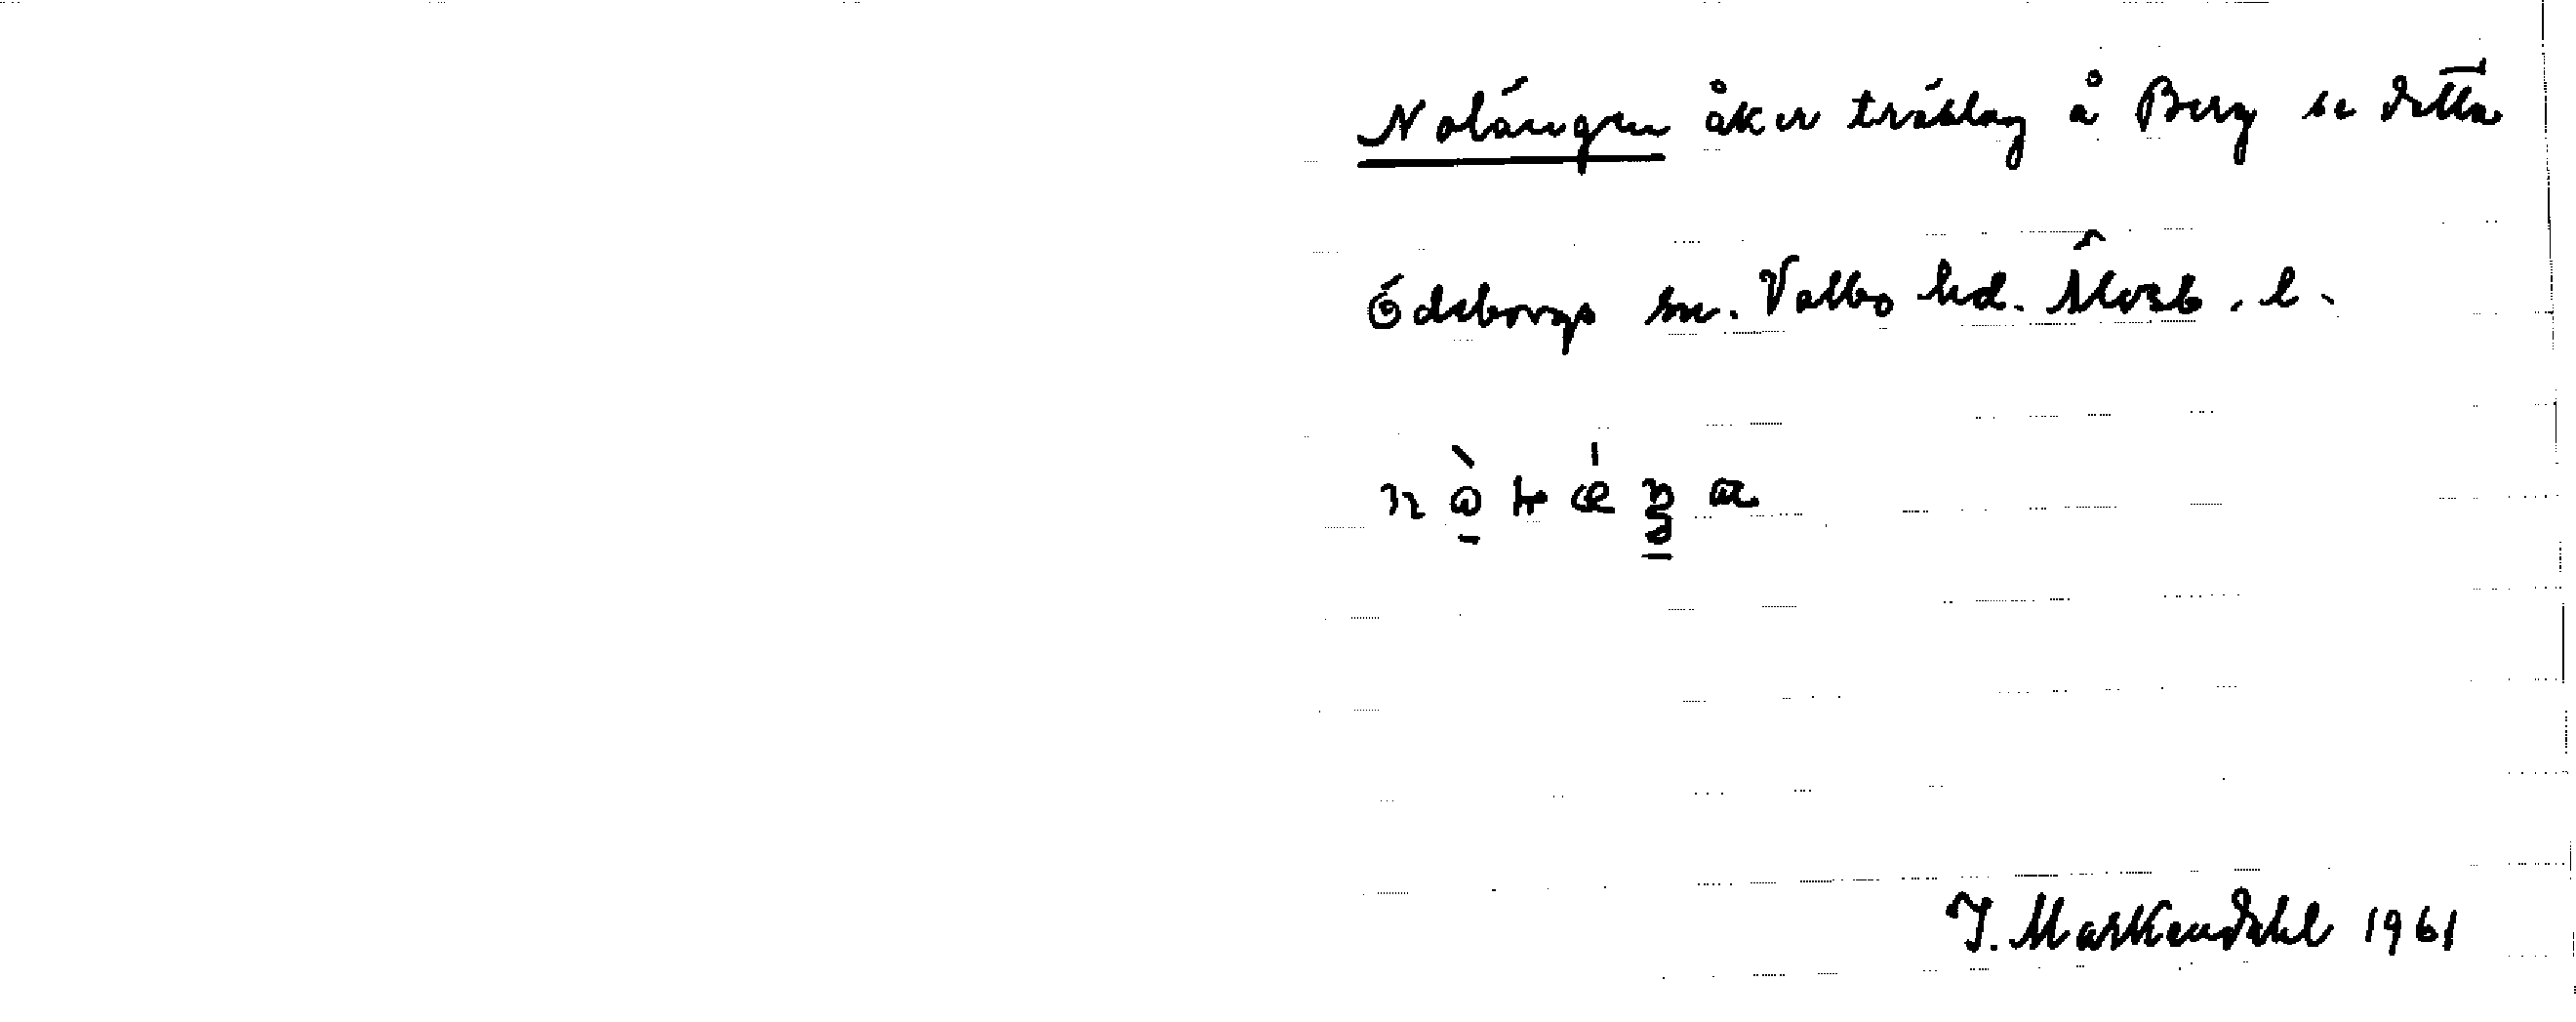 Nolängen åker träslag å Berg se detta
Ödeborgs sn. Valbo hd. Älvsb. l.
J. Markendahl 1961